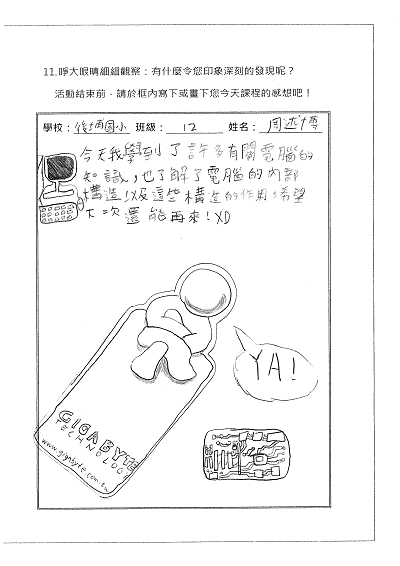 11.睜大眼睛細細觀察：有什麼令您印象深刻的發現呢？
活動結束前，請於框內寫下或畫下您今天課程的感想吧！
學校：後埔國小 班級： 12 姓名：周述
今天我學到了許多有關電腦的
知識，也了解了電腦的內部
構造！以及這些構造的作用，希望
下次還能再來！XD
YA!
GIGABYTE
TECHNOLOGY
www.gigabyte.com.tw